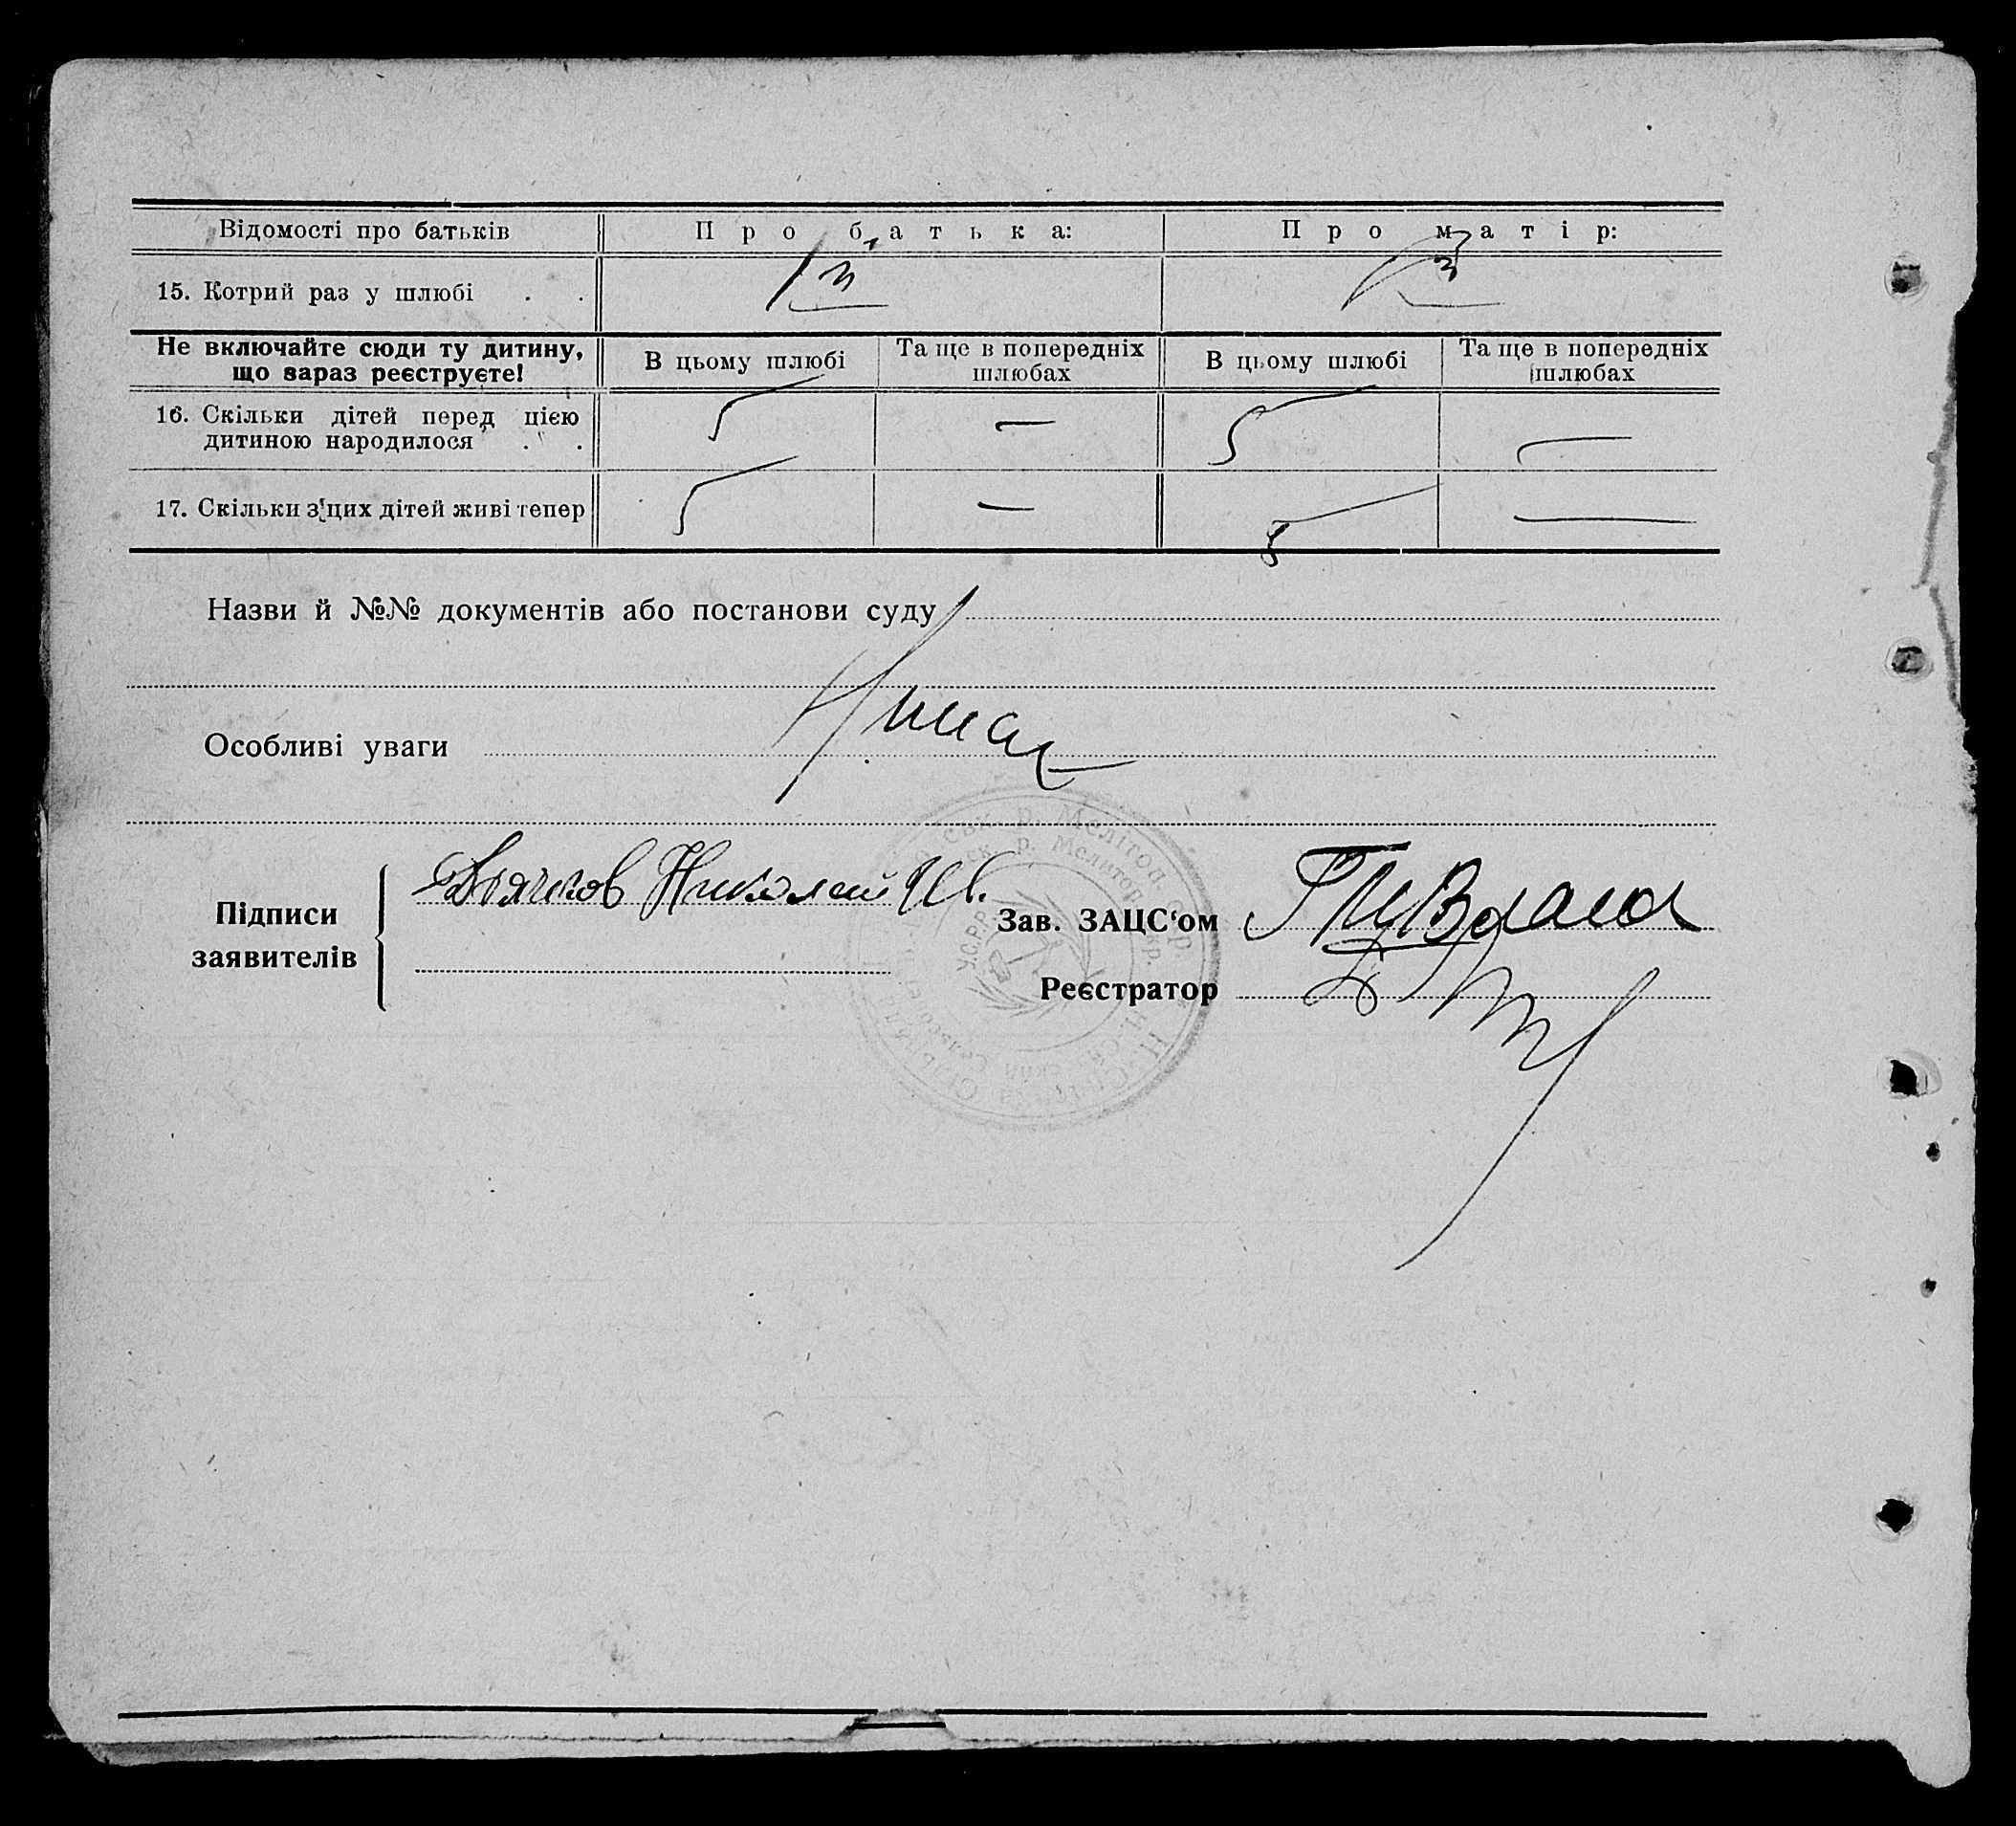 Відомості про батьків Про батька: Про матір:
15. Котрий раз у шлюбі . . 1й
Не включайте сюди ту дитину, що зараз реєструєте! В цьому шлюбі Та ще в попередніх шлюбах В цьому шлюбі Та ще в попередніх шлюбах
16. Скільки дітей перед цією дитиною народилося . . 5 — 5 —
17. Скільки з цих дітей живі тепер 5 — 5 —
Назви й №№ документів або постанови суду
Особливі уваги
Підписи заявителів
Дьячков Николай Ив.
Зав. ЗАЦС‘ом
Реєстратор
У.С.Р.Р.